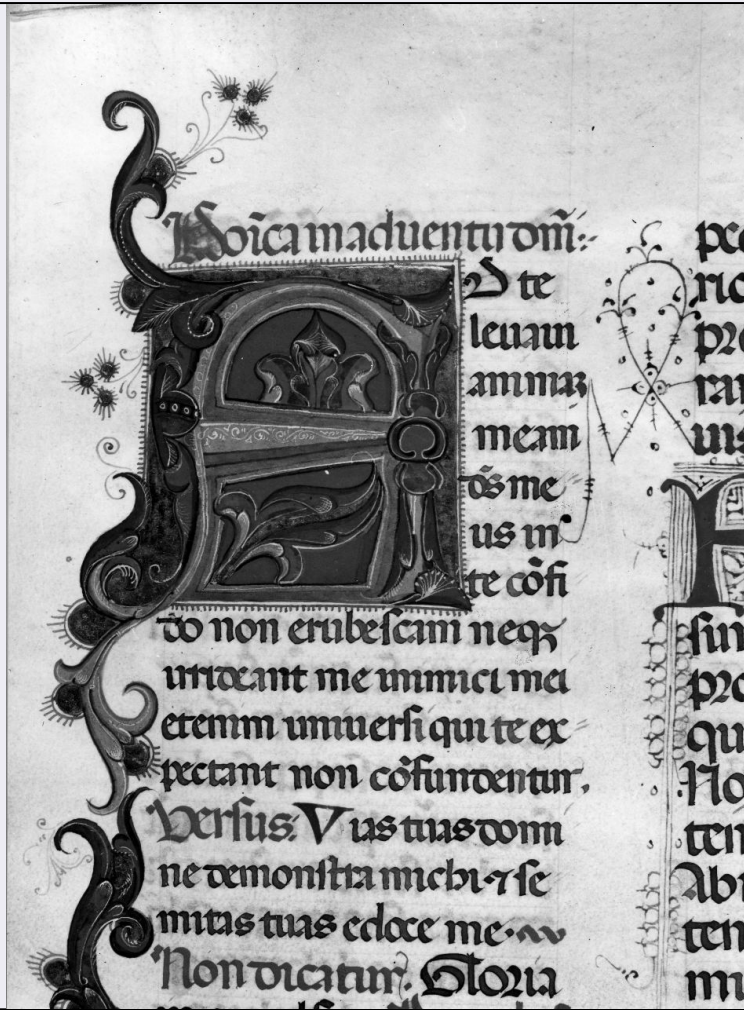 Doīca in adventu dom̄:
A D te
levavi
animaȝ
meam
ds̄ me
us in
te cōfi
do non erubescam neqȝ
irrideant me inimici mei
etenim universi qui te ex
pectant non cōfundentur.
Versus. Vias tuas domi
ne demonstra michi ⁊ se
mitas tuas edoce me
Non dicatur. Gloria
pec
ric
pro
ran
uis
sun
pro
qu
No
ten
Abi
ten
mi